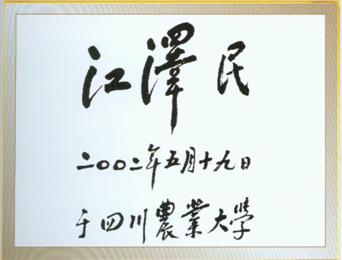 江澤民
二〇〇二年五月十九日
于四川農業大學